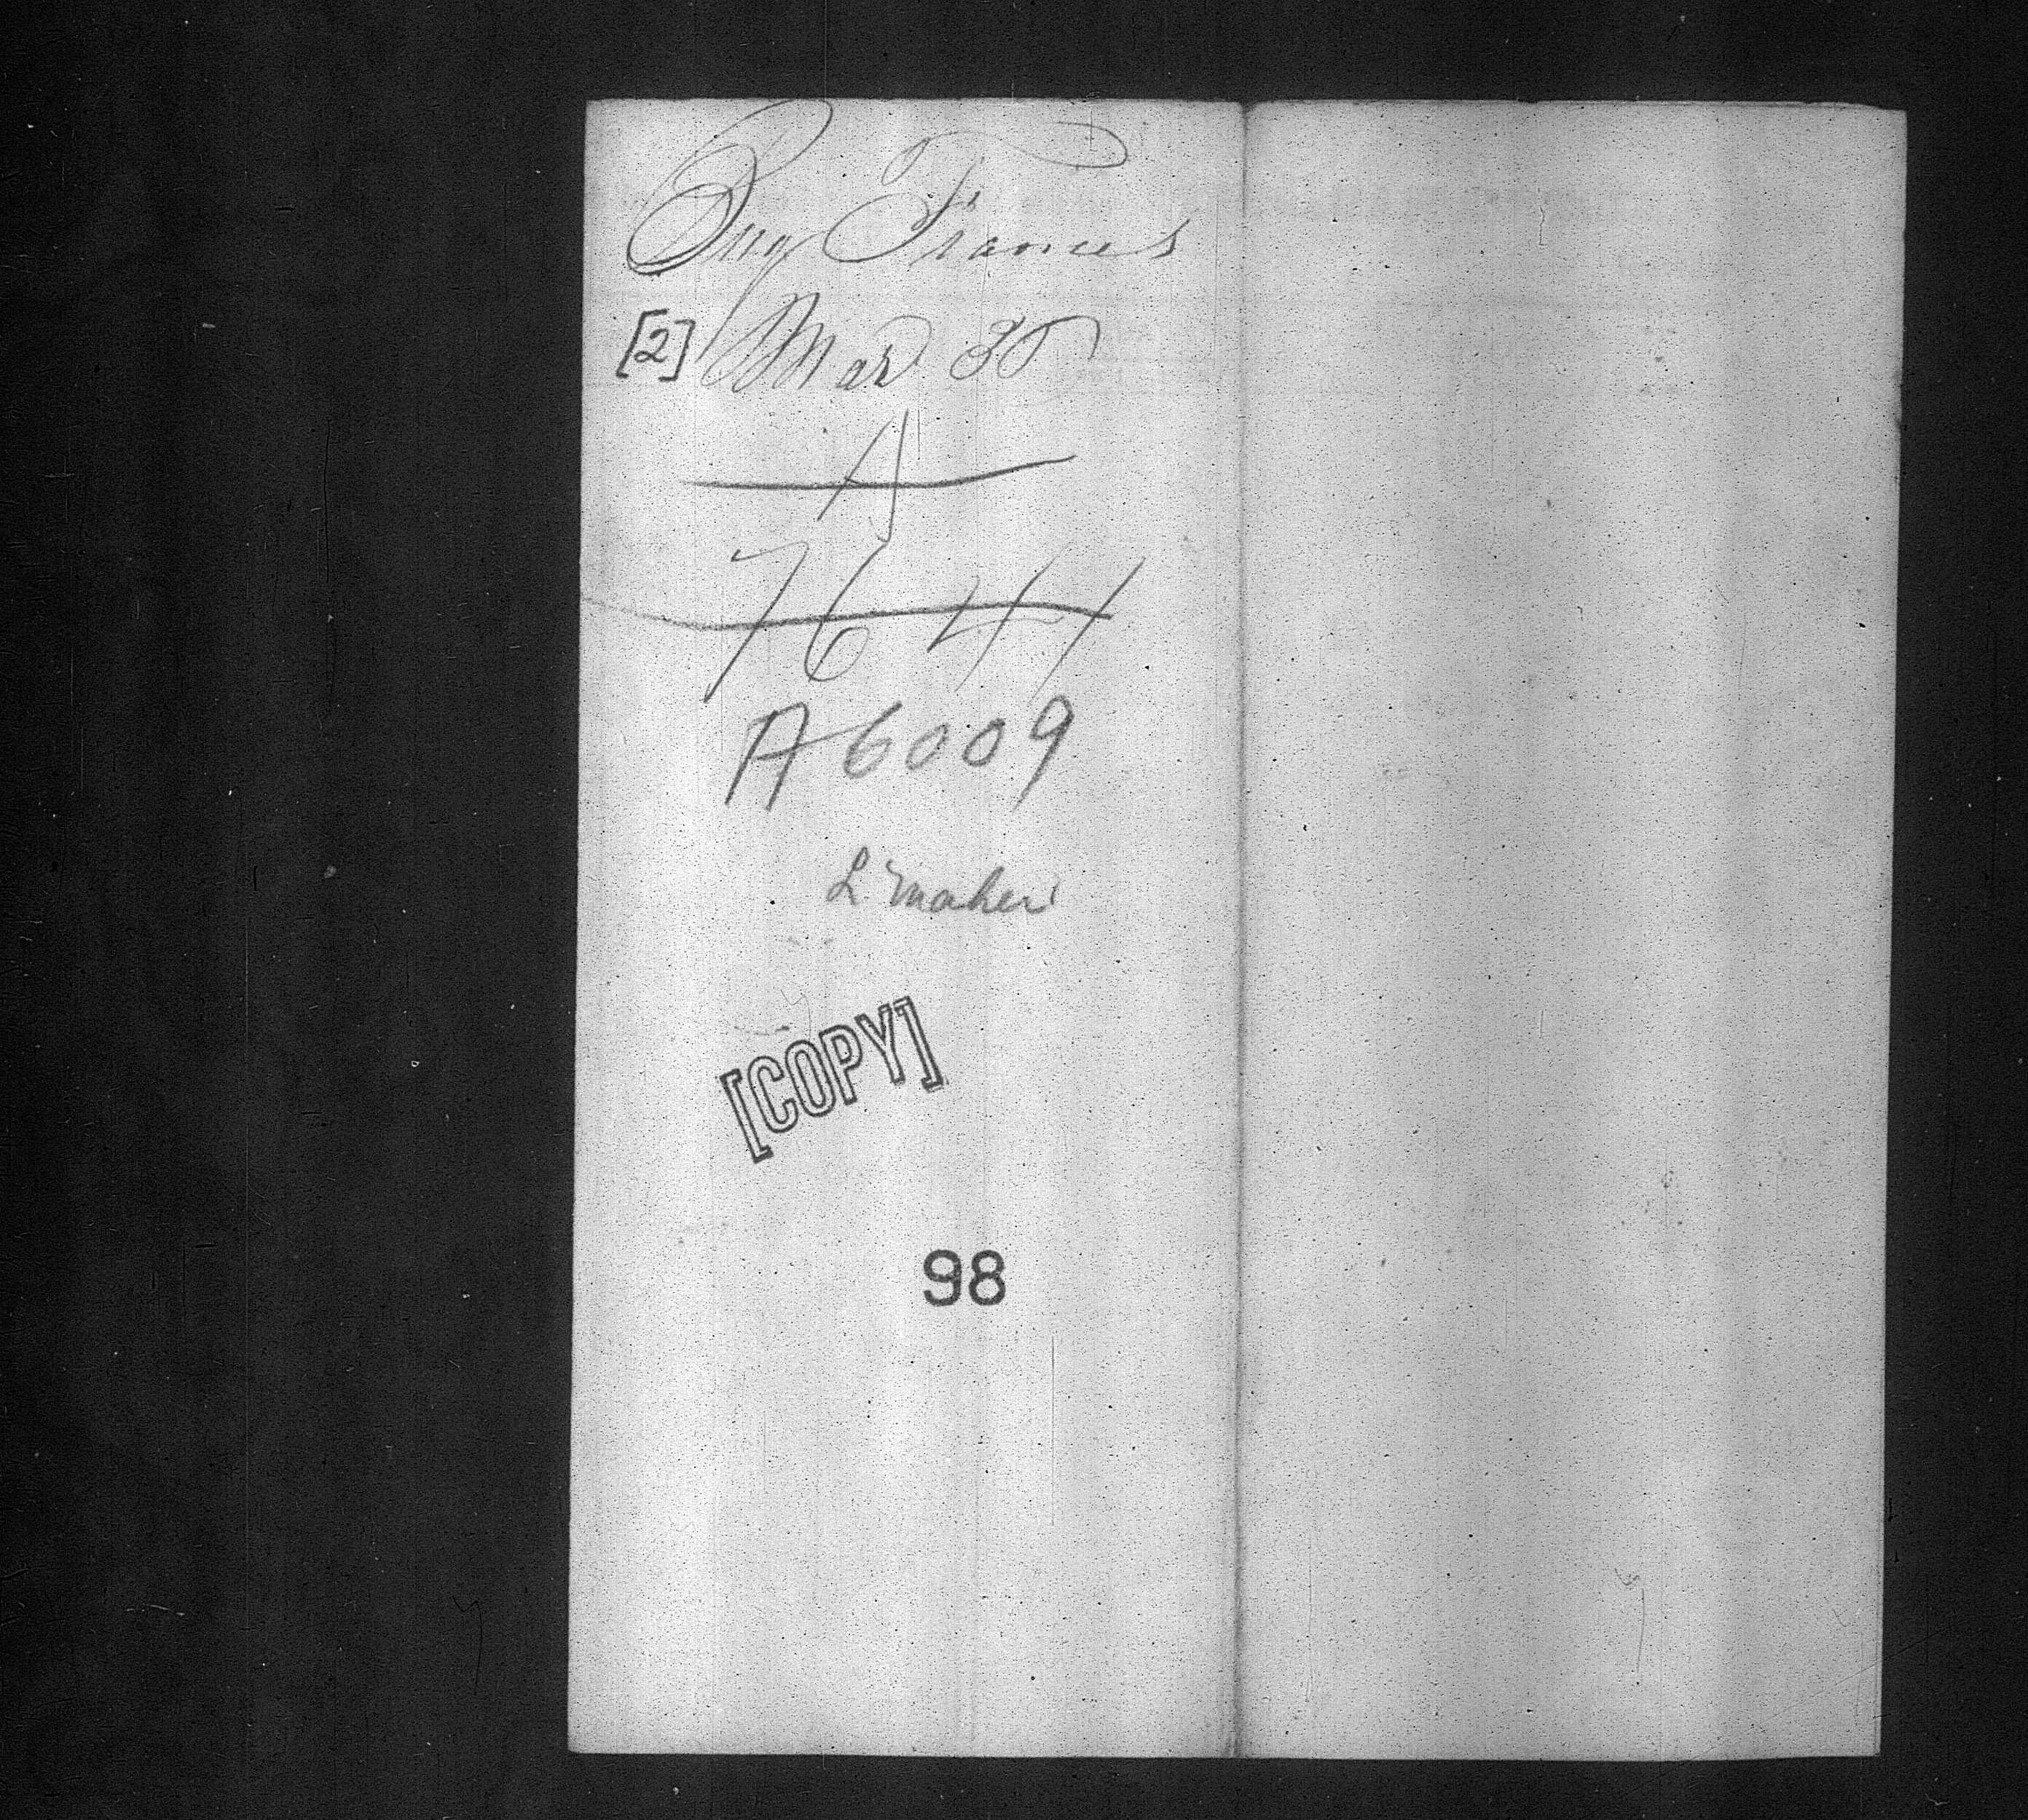 Frances
[2] Mar 30
A
7641
A 6009
L. Maher
[COPY]
98